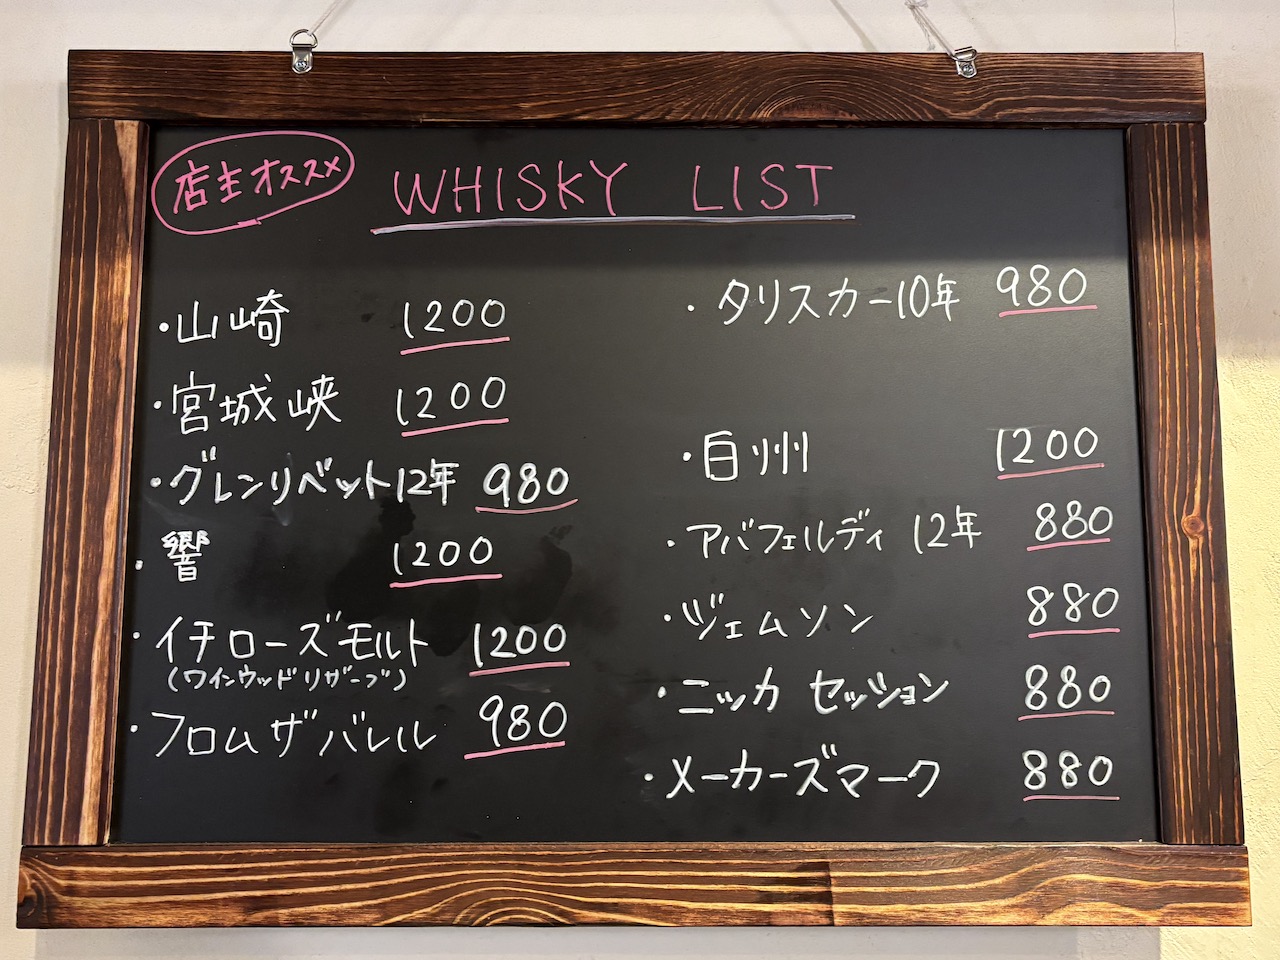 店主オススメ
WHISKY LIST
・山崎 1200
・宮城峡 1200
・グレンリベット12年 980
・響 1200
・イチローズモルト 1200
(ワインウッドリザーブ)
・フロムザバレル 980
・タリスカー10年 980
・白州 1200
・アバフェルディ 12年 880
・ヅェムソン 880
・ニッカ セッション 880
・メーカーズマーク 880